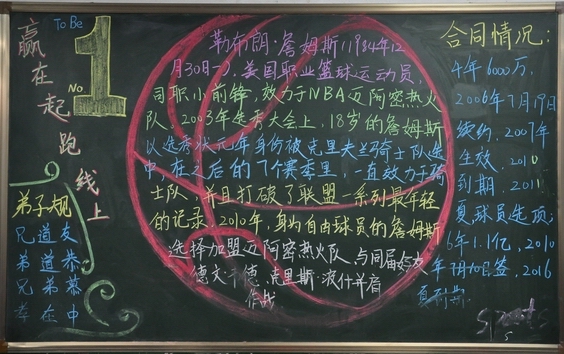 赢在起跑线上
To Be
No 1
勒布朗·詹姆斯(1984年12
月30日-),美国职业篮球运动员,
司职小前锋,效力于NBA迈阿密热火
队。2003年选秀大会上,18岁的詹姆斯
以选秀状元年身份被克里夫兰骑士队选
中,在之后的7个赛季里,一直效力于骑
士队,并且打破了联盟一系列最年轻
的记录。2010年,身为自由球员的詹姆斯
选择加盟迈阿密热火队,与同届好友
德文·韦德、克里斯·波什并肩
作战
合同情况:
4年6000万,
2006年7月19日
续约,2007年
生效,2010
到期,2011
夏球员选项;
6年1.1亿,2010
年7月加签,2016
夏到期.
弟子规
兄道友
弟道恭
兄弟慕
孝在中
sports